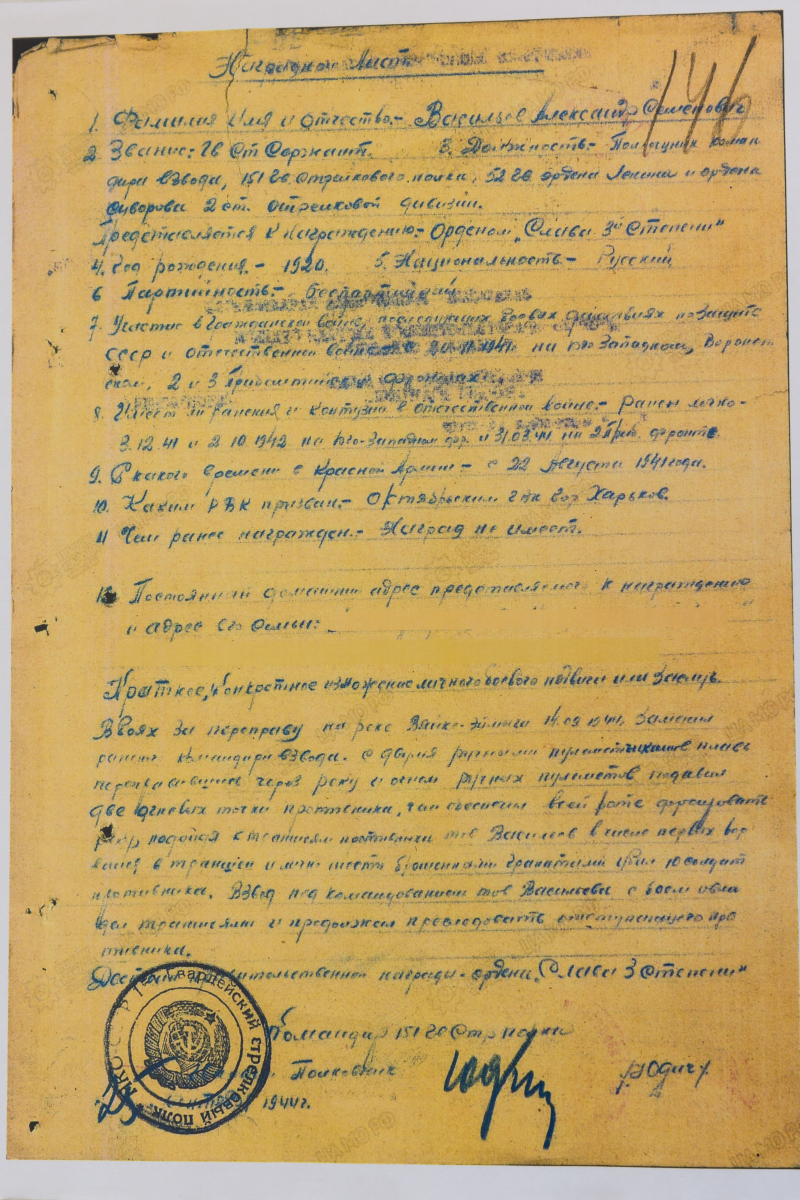 Наградной Лист
146
1. Фамилия Имя и Отчество:- Васильев Александр Семенович
2. Звание: Гв Ст Сержант. 3. Должность:- Помощник коман
дира взвода, 151 Гв. Стрелкового полка, 52 Гв. ордена Ленина и ордена
Суворова 2 ст. стрелковой дивизии.
Представляется к награждению:- Орденом „Слава 3й Степени"
4. Год рождения.- 1920. 5. Национальность:- Русский
6 Партийность:- беспартийный
7. Участие в гражданской войне, последующих боевых действиях по защите
СССР и отечественной войне с 1941г. на Юго Западном, Воронеж
ском, 2 и 3 Прибалтийском фронтах.
8. Имеет ли ранения и контузии в отечественной войне:- Ранен легко-
3.12.41 и 2.10.1942 на Юго-Западном фр. и 31.03.44 на 2 Приб. фронте.
9. С какого времени в Красной Армии:- с 22 Августа 1941 года.
10. Каким РВК призван:- Октябрьским гор Харьков.
11 Чем ранее награжден.- Наград не имеет.
12 Постоянный домашний адрес представляемого к награждению
и адрес его семьи:
Краткое, конкретное изложение личного боевого подвига или заслуг.
В боях за переправу на реке Вяйке-Эмайги 14.09.1944г. заменил
раненого командира взвода. с двумя ручными пулеметчиками вплавь
переправившись через реку и огнем ручных пулеметов подавил
две огневых точки противника, чем обеспечил всей роте форсировать
реку, подойдя к траншеям противника тов Васильев в числе первых вор
вался в траншеи и лично брошенными гранатами убил 10 солдат
противника. Взвод под командованием тов Васильева с боем овла
дел траншеями и продолжал преследовать отступающего про
тивника.
Достоин правительственной награды - ордена „Слава 3 Степени"
Командир 151 Гв Стр полка
Гв. Полковник /Юдич/
25 1944г.
Гвардейский стрелковый полк